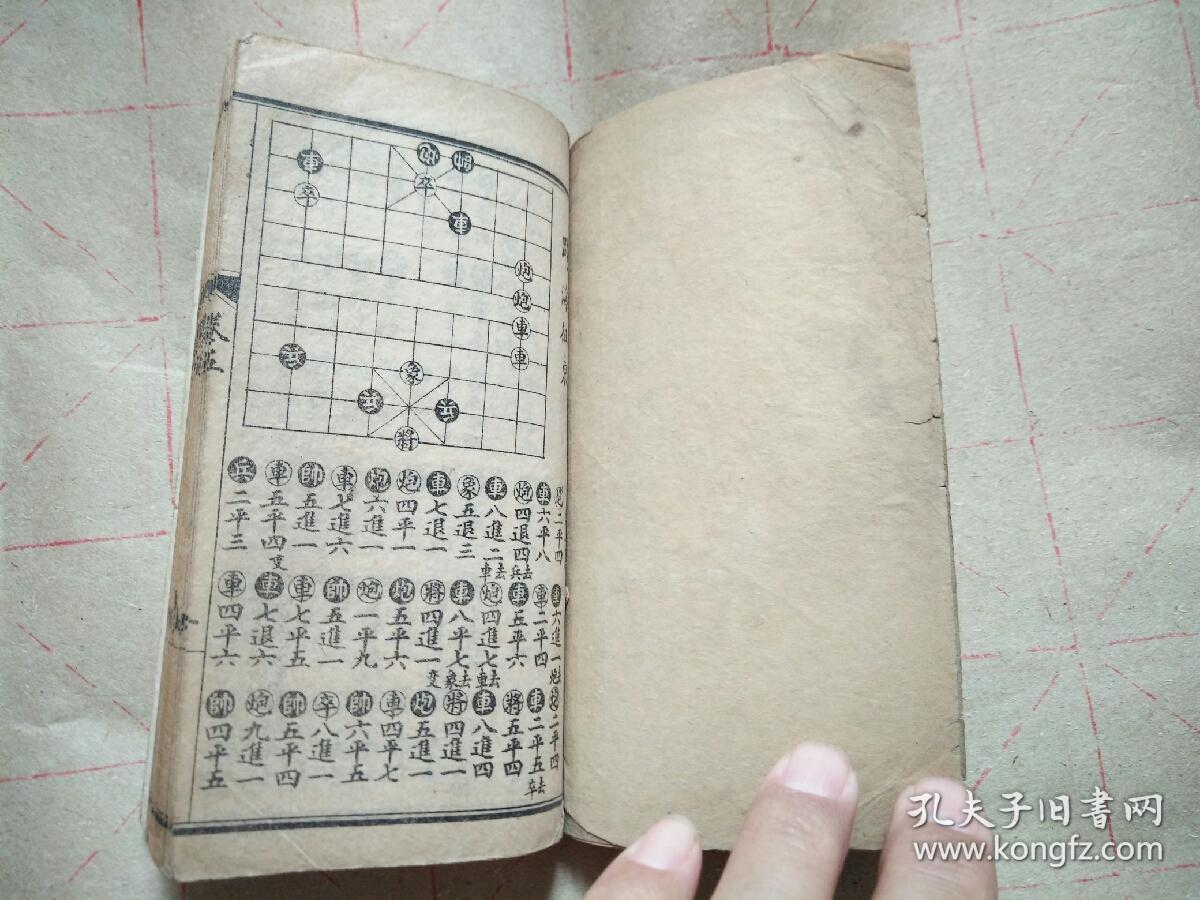 炮 帥
車
卒 卒
車
炮
炮
車
車
兵
象
兵 兵
將
二平四 車六進一去炮 二平四
車六平八 車二平四 車二平五去卒
炮四退四去兵 車五平六 將五平四
車八進二去車 炮四進七去車 車八進四
象五退三 車八平七去象 將四進一
車七退一 將四進一變 炮五進一
炮四平一 炮五平六 車四平七
炮六進一 炮一平九 帥六平五
車七進六 帥五進一 卒八進一
帥五進一 車七平五 帥五平四
車五平四變 車七退六 炮九進一
兵二平三 車四平六 帥四平五
卷五
孔夫子旧書网
www.kongfz.com